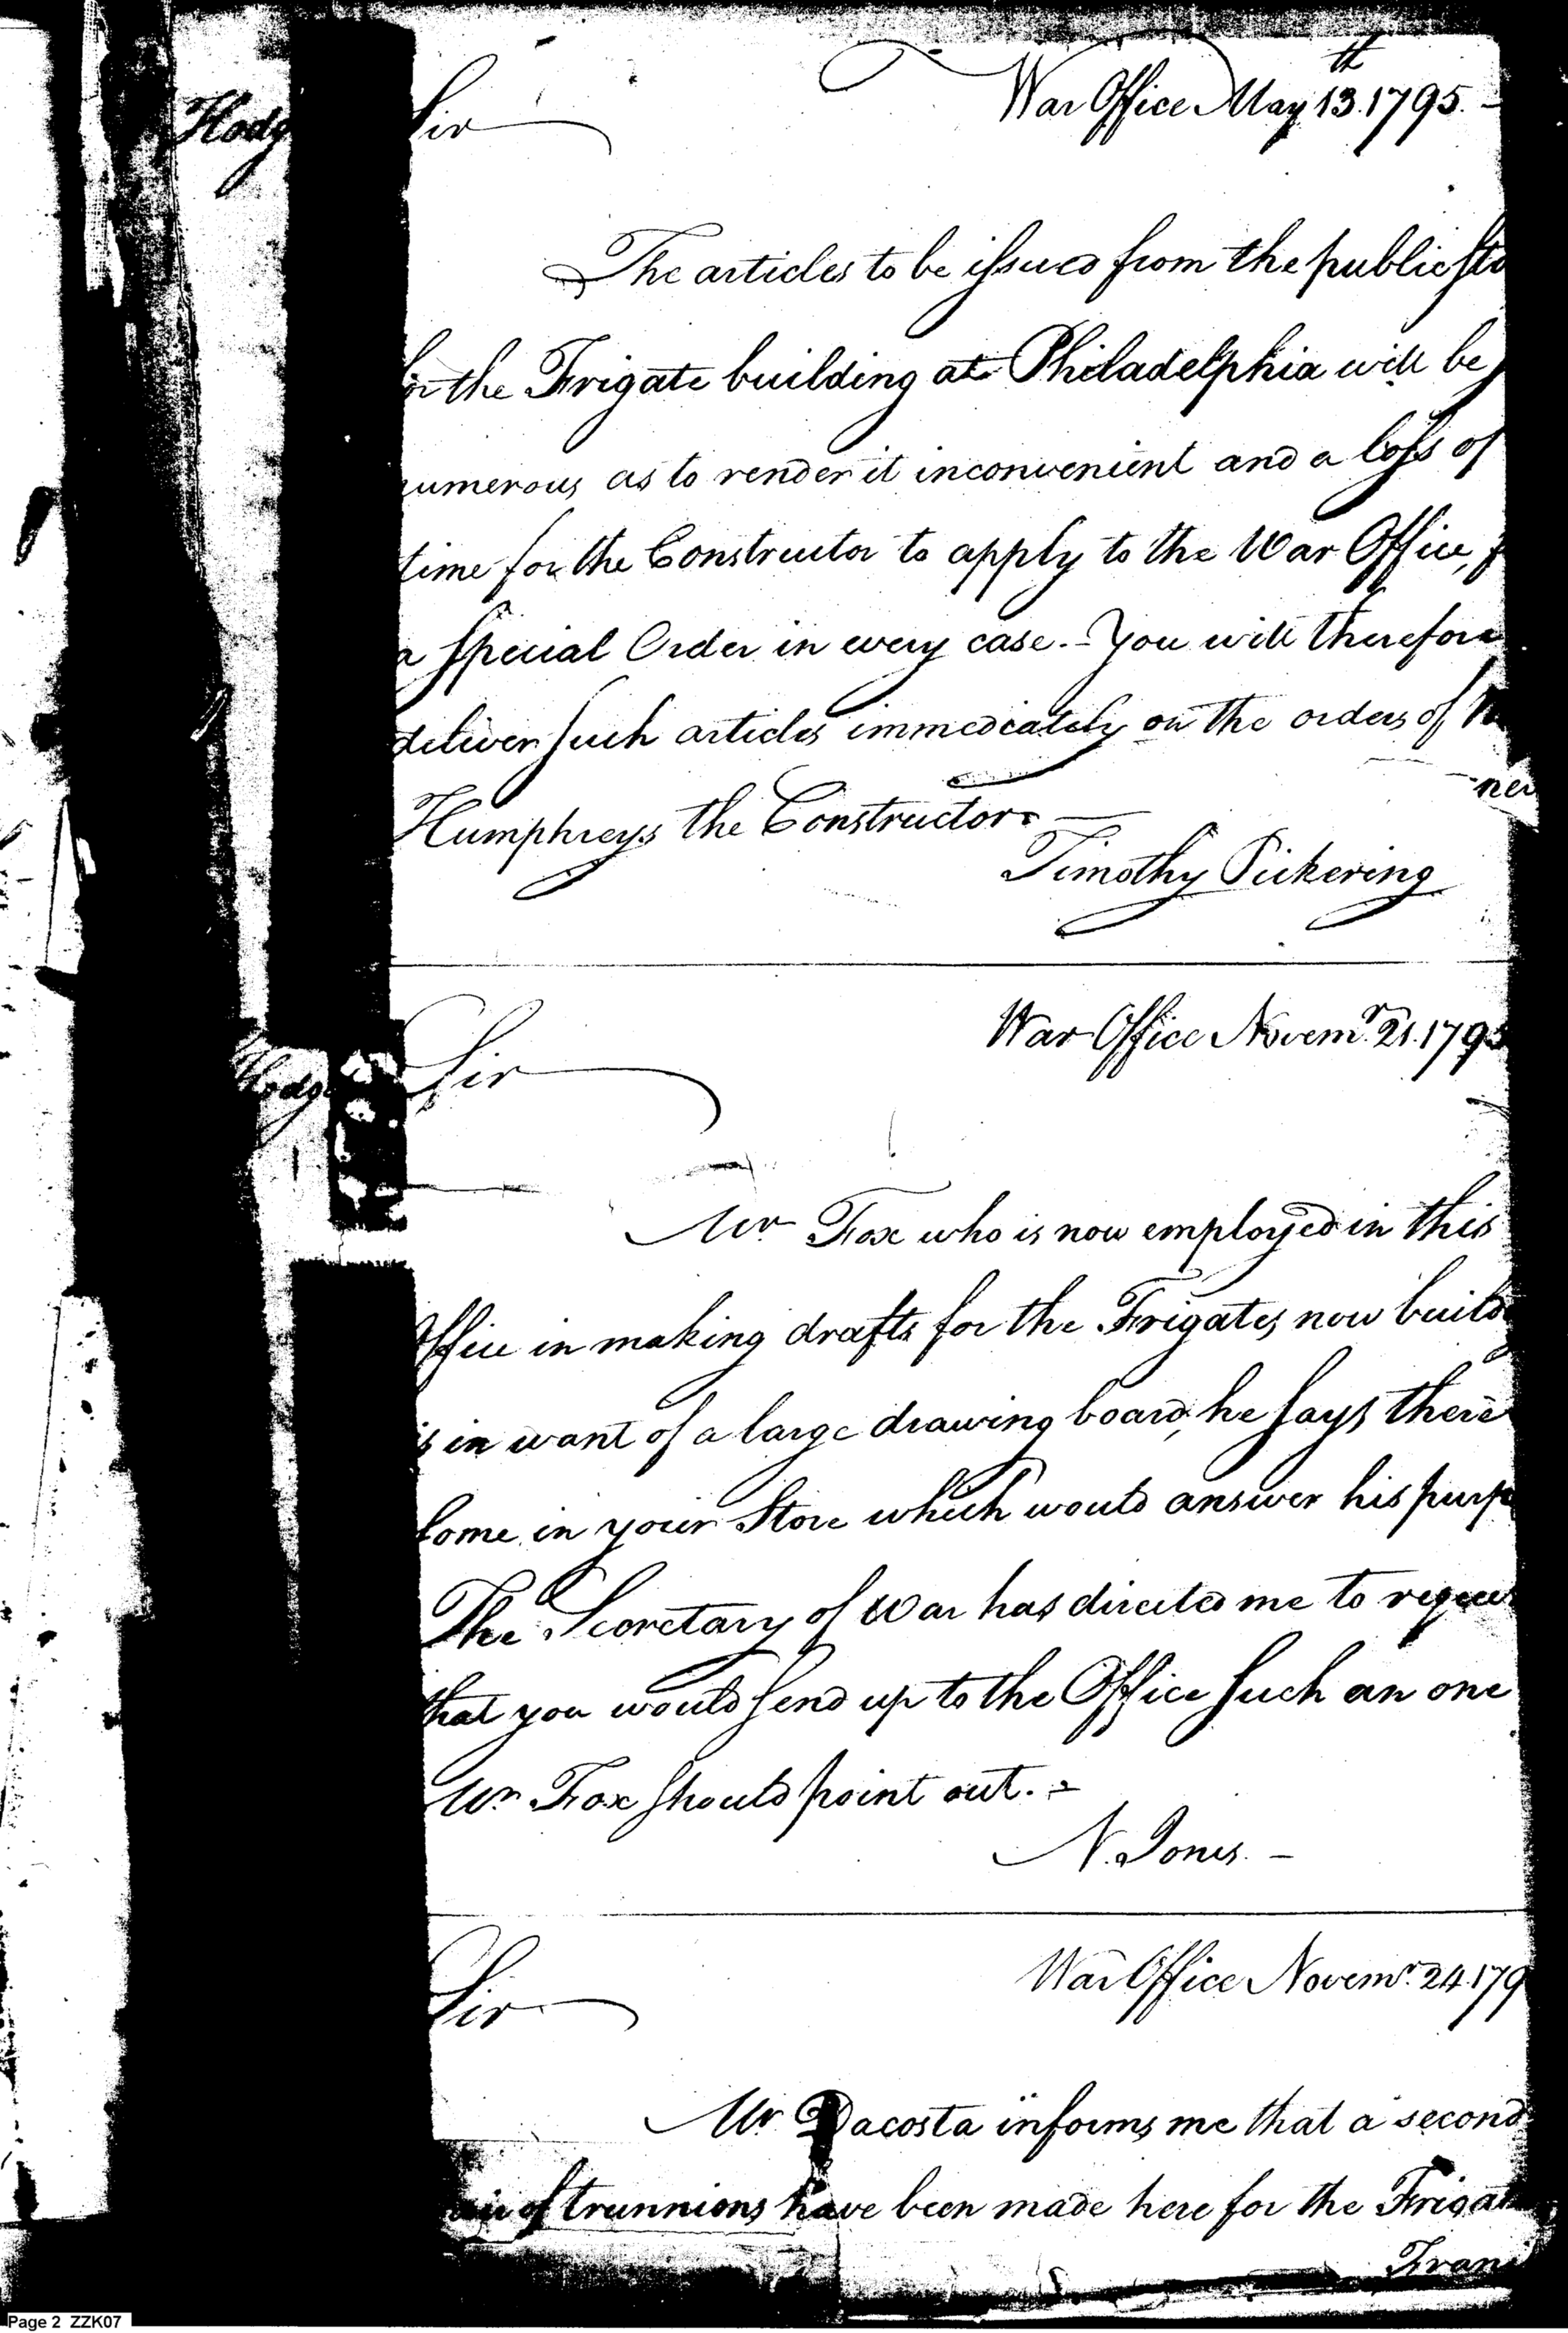 War Office May 13th. 1795. -
Hodg
Sir
The articles to be issued from the public sto
for the Frigate building at Philadelphia will be
numerous as to render it inconvenient and a loss of
time for the Constructor to apply to the War Office, f
a special Order in every case. - You will therefore
deliver such articles immediately on the orders of
Humphreys the Constructor. —
Timothy Pickering
War Office Novemr. 21. 1795
Hodg
Sir
Mr. Fox who is now employed in this
Office in making drafts for the Frigates now build
is in want of a large drawing board, he says there
some in your Store which would answer his purp
The Secretary of War has directed me to reques
that you would send up to the Office such an one
Mr. Fox should point out. -
N. Jones. -
War Office Novemr. 24. 179
Sir
Mr Dacosta informs me that a second
pair of trunnions have been made here for the Frigat
Fran
Page 2 ZZK07